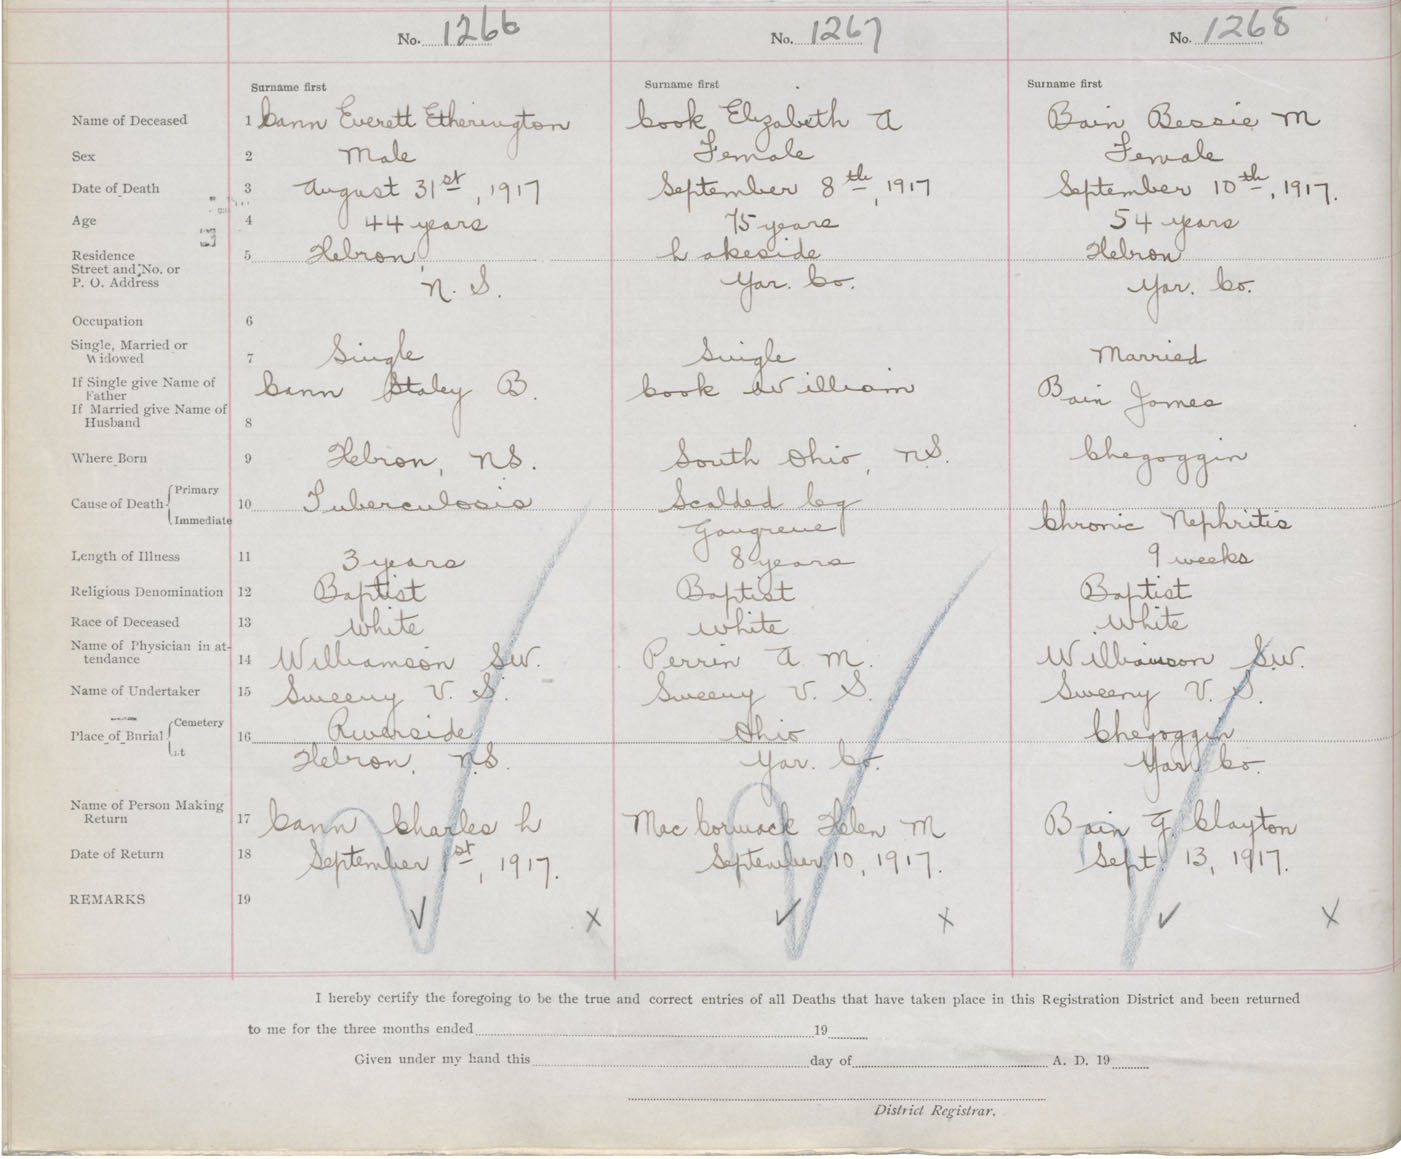 No. 1266 No. 1267 No. 1268
Surname first Surname first Surname first
Name of Deceased 1 Cann Everett Etherington Cook Elizabeth A Bain Bessie M
Sex 2 Male Female Female
Date of Death 3 August 31st, 1917 September 8th, 1917 September 10th, 1917.
Age 4 44 years 75 years 54 years
Residence 5 Hebron, Lakeside Hebron
Street and No. or
P. O. Address N. S. Yar. Co. Yar. Co.
Occupation 6
Single, Married or
Widowed 7 Single Single Married
If Single give Name of
Father Cann Staley B. Cook William Bain James
If Married give Name of
Husband 8
Where Born 9 Hebron, NS. South Ohio, NS. Chegoggin
Primary
Cause of Death 10 Tuberculosis Scalded leg
Immediate Gangrene Chronic Nephritis
Length of Illness 11 3 years 8 years 9 weeks
Religious Denomination 12 Baptist Baptist Baptist
Race of Deceased 13 White White White
Name of Physician in at-
tendance 14 Williamson S.W. Perrin A M. Williamson S.W.
Name of Undertaker 15 Sweeny V. S. Sweeny V. S. Sweeny V. S.
Cemetery
Place of Burial 16 Riverside Ohio Chegoggin
Hebron, N.S. Yar. Co. Yar. Co.
Name of Person Making
Return 17 Cann Charles L MacCormack Helen M Bain G. Clayton
Date of Return 18 September 1st, 1917. September 10, 1917. Sept. 13, 1917.
REMARKS 19
I hereby certify the foregoing to be the true and correct entries of all Deaths that have taken place in this Registration District and been returned
to me for the three months ended 19
Given under my hand this day of A. D. 19
District Registrar.